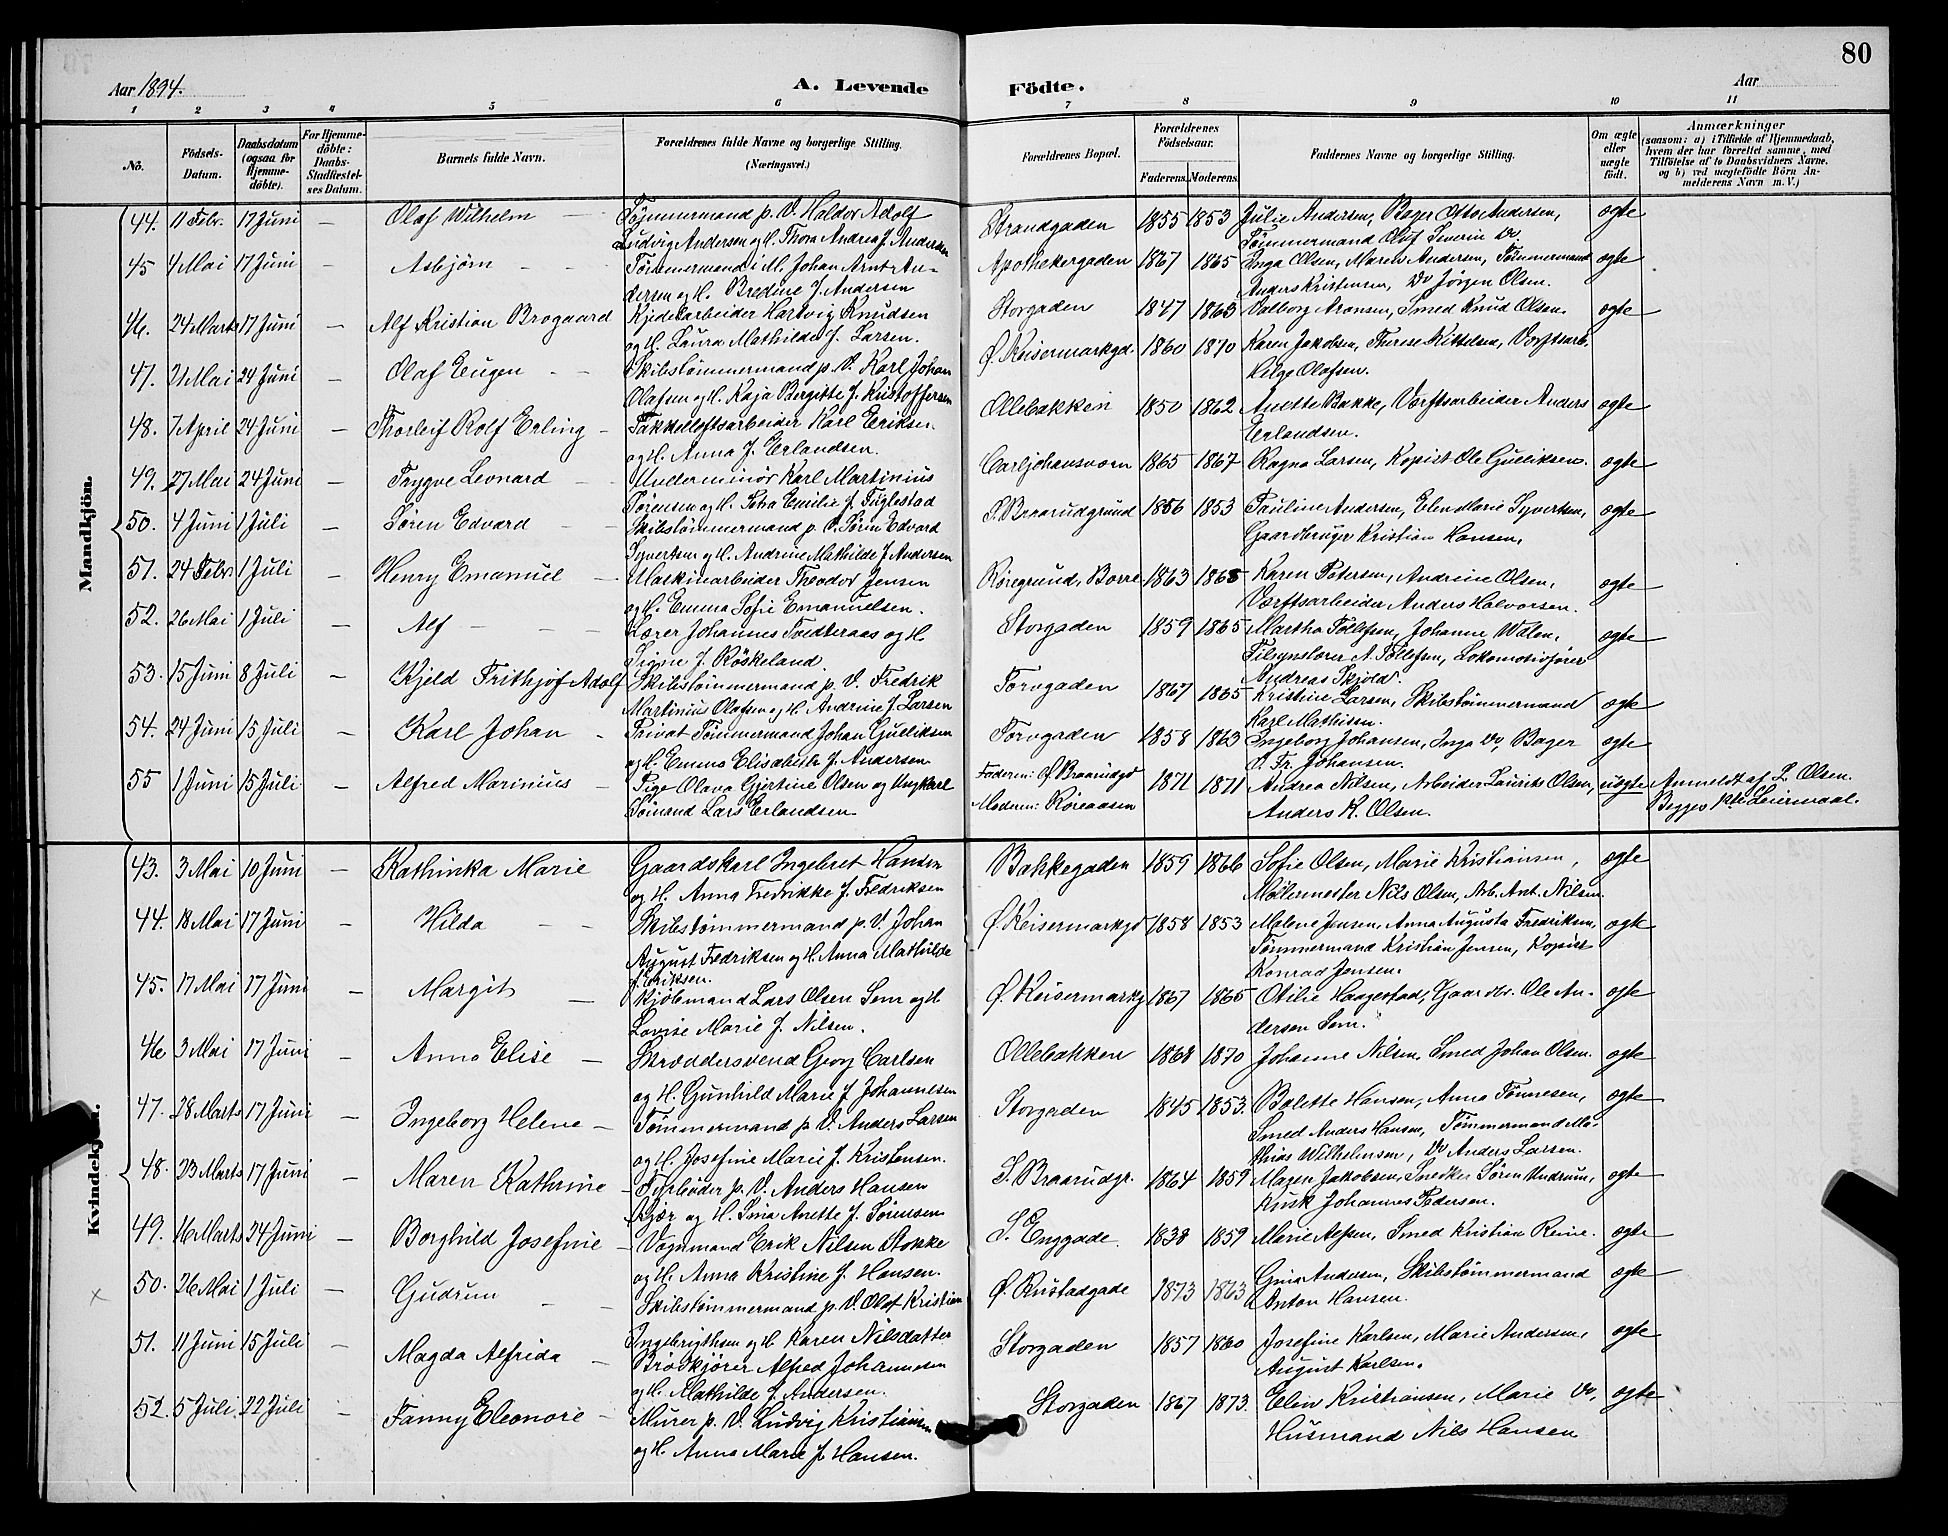 80
Aar 1894.
A. Levende Födte.
Aar
1 2 3 4 5 6 7 8 9 10 11
No.
Födsels-Datum.
Daabsdatum (ogsaa for Hjemmedöbte).
For Hjemmedöbte: Daabs-Stadfæstelses Datum.
Barnets fulde Navn.
Forældrenes fulde Navne og borgerlige Stilling.
(Næringsvei.)
Forældrenes Bopæl.
Forældrenes Födselsaar.
Faderens. Moderens.
Faddernes Navne og borgerlige Stilling.
Om ægte eller uægte födt.
Anmærkninger
(saasom: a) i Tilfælde af Hjemmedaab, hvem der har forrettet samme, med Tilföielse af to Daabsvidners Navne, og b) ved uægtefödte Börn Anmelderens Navn m. V.)
Mandkjön.
44. 11 Febr. 17 Juni — Olaf Wilhelm — Tømmermand p. V. Haldor Adolf
Ludvig Andersen og H. Thora Andrea f. Andersen
Strandgaden 1855 1853 Julie Andersen, Bager Otto Andersen,
Tømmermand Oluf Severin Do,
ægte
45 4 Mai 17 Juni — Asbjørn — Tømmermand i M. Johan Arnt An-
dersen og H. Bredine f. Andersen
Apothekergaden 1867 1865 Inga Olsen, Maren Andersen, Tømmermand
Anders Kristensen, Do Jørgen Olsen.
ægte
46. 24 Marts 17 Juni — Alf Kristian Brogaard Kjedelarbeider Hartvig Knudsen
og H. Laura Mathilde f. Larsen.
Storgaden 1847 1863 Valborg Aronsen, Smed Knud Olsen.
ægte
47. 21 Mai 24 Juni — Olaf Eugen — Skibstømmermand p. V. Karl Johan
Olafsen og H. Kaja Bergitte f. Kristoffersen
Ø. Keisermarkgd. 1860 1870 Karen Jakobsen, Therese Kittelsen, Værftsarb.
Helge Olafsen.
ægte
48. 7 April 24 Juni — Thorleif Rolf Erling — Takkelloftsarbeider Karl Eriksen
og H. Anna f. Erlandsen.
Ollebakken 1850 1862 Anette Bakke, Værftsarbeider Anders
Erlandsen.
ægte
49. 27 Mai 24 Juni — Trygve Leonard — Underminør Karl Martinius
Sørensen og H. Petra Emilie f. Fuglestad
Carljohansværn 1865 1867 Ragna Larsen, Kopist Ole Gulliksen.
ægte
50. 4 Juni 1 Juli — Søren Edvard — Skibstømmermand p. V. Søren Edvard
Syvertsen og H. Andrine Mathilde f. Andersen
S. Braarudgrund 1856 1853 Pauline Andersen, Elen Marie Syvertsen,
Gaardbruger Kristian Hansen.
ægte
51. 24 Febr. 1 Juli — Henry Emanuel — Maskinarbeider Theodor Jensen
og H. Emma Sofie Emanuelsen.
Røregrund, Borre 1863 1868 Karen Petersen, Andreine Olsen,
Værftsarbeider Anders Halvorsen.
ægte
52. 26 Mai 1 Juli — Alf — Lærer Johannes Tvedteraas og H.
Signe f. Röskeland.
Storgaden 1859 1865 Martha Tollefsen, Johanne Walen,
Tilsynslærer A. Tollefsen, Lokomotivfører
Andreas Skjold.
ægte
53. 15 Juni 8 Juli — Kjeld Frithjof Adolf Skibstømmermand p. V. Fredrik
Martinius Olafsen og H. Andrine f. Larsen
Torvgaden 1867 1865 Kristine Larsen, Skibstømmermand
Karl Mathisen.
ægte
54. 24 Juni 15 Juli — Karl Johan — Privat Tømmermand Johan Gulliksen
og H. Emma Elisabeth f. Andersen
Torvgaden 1858 1863 Ingeborg Johansen, Inga Do, Bager
O. Fr. Johansen.
ægte
55 1 Juni 15 Juli — Alfred Marinius — Pige Olava Gjertine Olsen og Ungkarl
Sømand Lars Erlandsen
Faderen: Ø Braarudgd
Moderen: Røreaasen
1871 1871 Andrea Nilsen, Arbeider Laurits Olsen,
Anders K. Olsen.
uægte Anmeldt af L. Olsen.
Begges 1ste Leiermaal.
Kvindekjön.
43. 3 Mai 10 Juni — Kathinka Marie Gaardskarl Ingebret Hansen
og H. Anna Fredrikke f. Fredriksen
Bakkegaden 1859 1866 Sofie Olsen, Marie Kristiansen,
Malermester Nils Olsen, Arb. Ant. Nilsen
ægte
44. 18 Mai 17 Juni — Hilda — Skibstømmermand p. V. Johan
August Fredriksen og H. Anna Mathilde
f. Eriksen.
Ø. Keisermarkgd 1858 1853 Malene Jensen, Anna Augusta Fredriksen,
Tømmermand Kristian Jensen, Kopist
Konrad Jensen.
ægte
45. 17 Mai 17 Juni — Margit — Kjöbmand Lars Olsen Sem og H
Lovise Marie f. Nilsen.
Ø. Keisermarkg 1867 1865 Otilie Haagestad, Gaardbr. Ole An-
dersen Sem.
ægte
46 3 Mai 17 Juni — Anna Elise — Skræddersvend Georg Carlsen
og H. Gunhild Marie f. Johannesen
Ollebakken 1868 1870 Johanne Nilsen, Smed Johan Olsen.
ægte
47. 28 Marts 17 Juni — Ingeborg Helene — Tømmermand p. V. Anders Larsen
og H. Josefine Marie f. Kristensen.
Storgaden 1845 1853. Bolette Hansen, Anna Tønnesen,
Smed Anders Hansen, Tømmermand Ma-
thias Wilhelmsen, Do Anders Larsen.
ægte
48. 23 Marts 17 Juni — Maren Kathrine — Fyrbøder p. V. Anders Hansen
Kjær og H. Sina Anette f. Sørensen
S. Braarudgr. 1864 1859 Maren Jakobsen, Snedker Søren Undrum,
Kusk Johannes Pedersen.
ægte
49. 16 Marts 24 Juni — Borghild Josefine — Vognmand Erik Nilsen Stokke
og H. Anna Kristine f. Hansen.
S. Enggade. 1838 1859 Marie Aessen, Smed Kristian Reine.
ægte
× 50. 26 Mai 1 Juli — Gudrun — Skibstømmermand p. V. Olaf Kristian
Ingebrigthsen og H Karen Nilsdatter
Ø. Rustadgade 1873 1863 Gina Andersen, Skibstømmermand
Anton Hansen.
ægte
51. 11 Juni 15 Juli — Magda Alfrida — Brødkjører Alfred Johannesen
og H. Mathilde f. Andersen.
Storgaden 1857 1860 Josefine Karlsen, Marie Andersen,
August Karlsen.
ægte
52. 5 Juli 22 Juli — Fanny Eleonore — Murer p. V. Ludvig Kristiansen
og H. Anna Marie f. Hansen.
Storgaden 1867 1873. Elen Kristiansen, Marie Do,
Husmand Nils Hansen
ægte